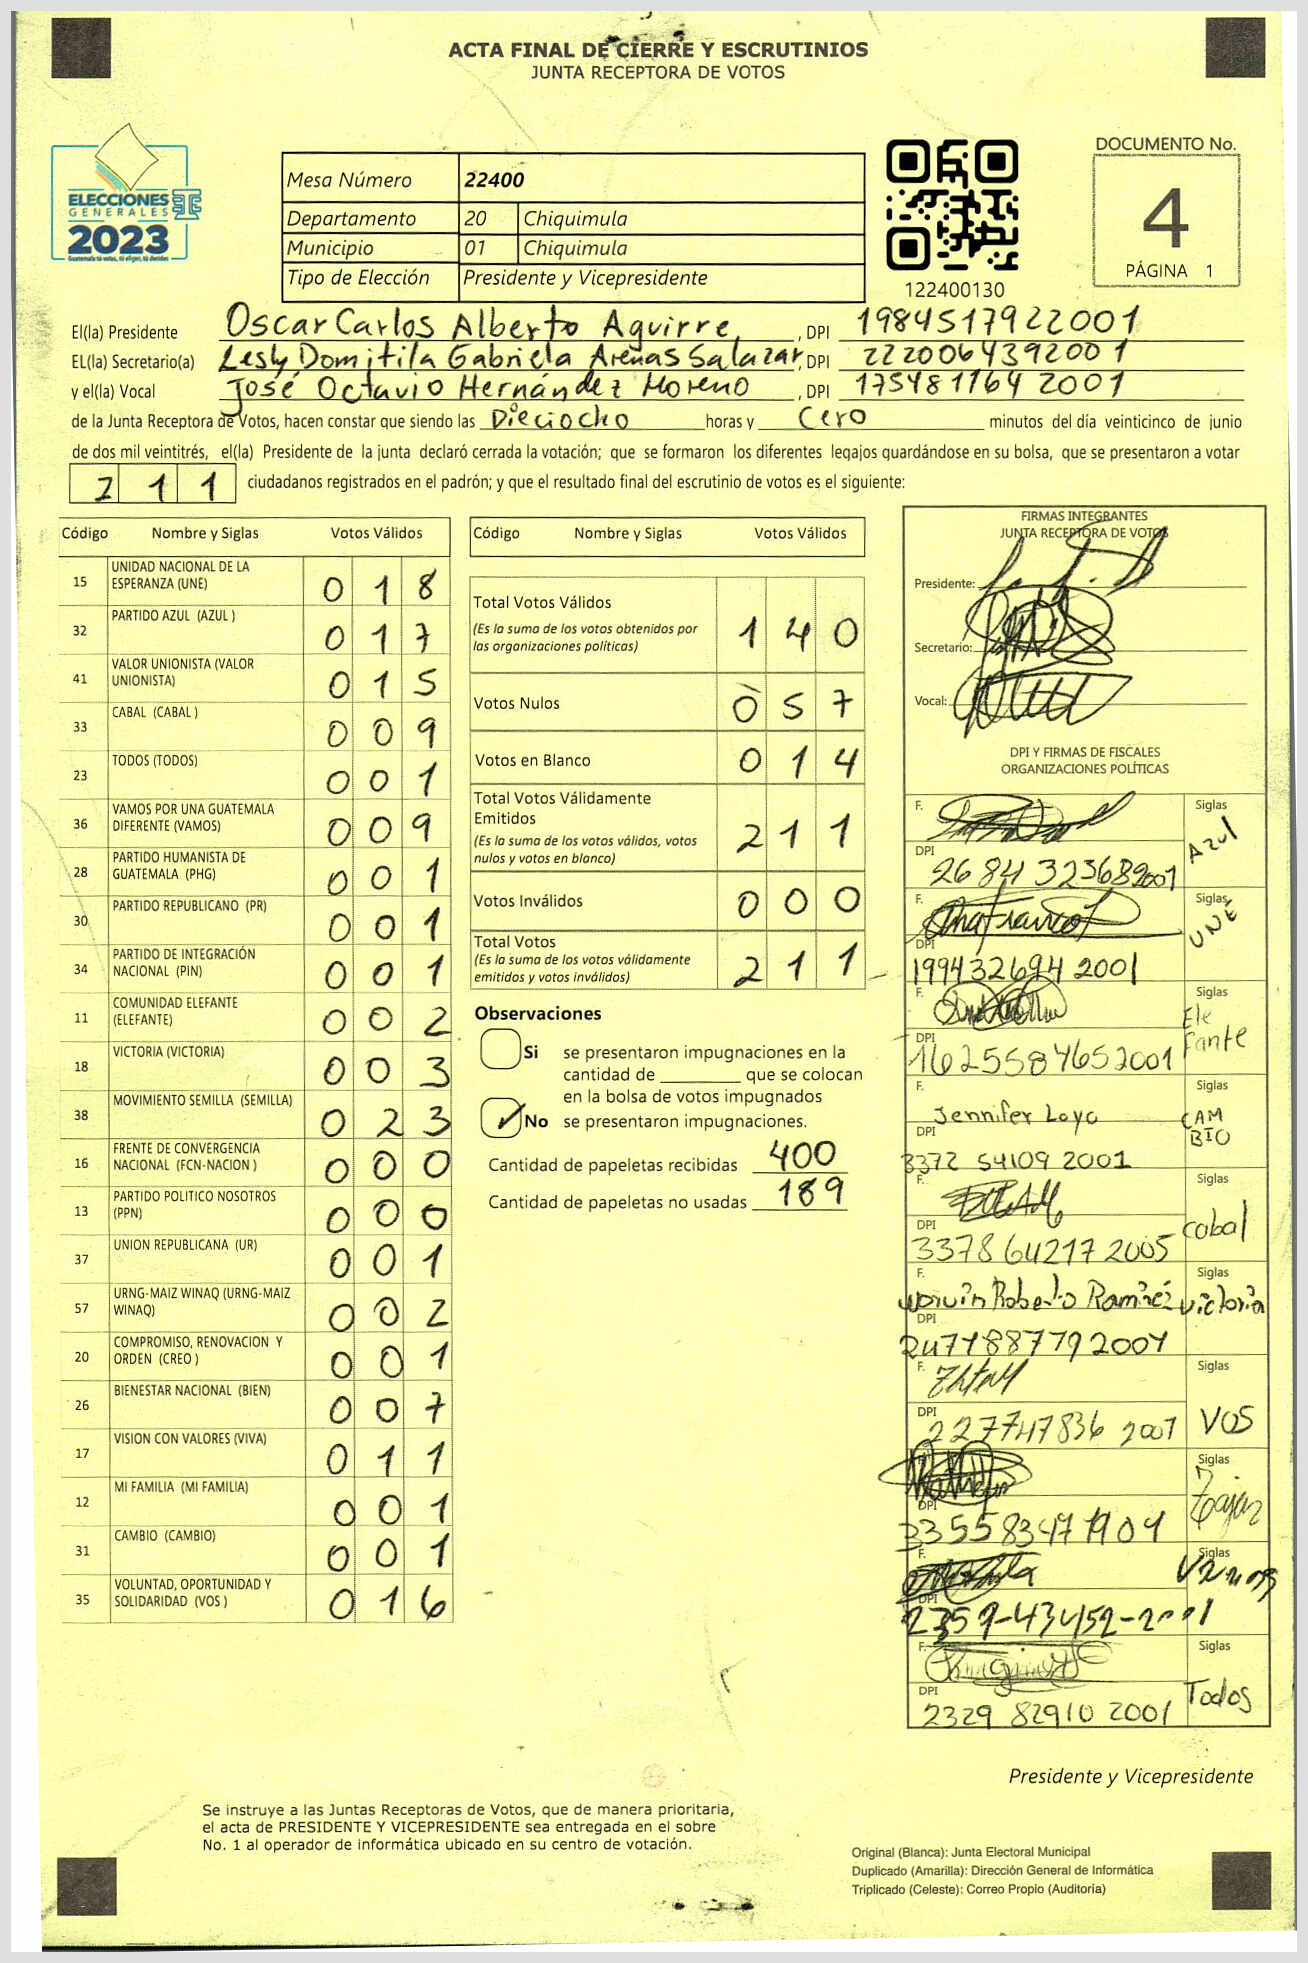 ACTA FINAL DE CIERRE Y ESCRUTINIOS
JUNTA RECEPTORA DE VOTOS
ELECCIONES
GENERALES
2023
Guatemala tú votas, tú eliges, tú decides
Mesa Número 22400
Departamento 20 Chiquimula
Municipio 01 Chiquimula
Tipo de Elección Presidente y Vicepresidente
122400130
DOCUMENTO No.
4
PÁGINA 1
El(la) Presidente Oscar Carlos Alberto Aguirre, DPI 1984517922001
EL(la) Secretario(a) Lesly Domitila Gabriela Arenas Salazar, DPI 2220064392001
y el(la) Vocal José Octavio Hernández Moreno, DPI 1754811642001
de la Junta Receptora de Votos, hacen constar que siendo las Dieciocho horas y Cero minutos del día veinticinco de junio
de dos mil veintitrés, el(la) Presidente de la junta declaró cerrada la votación; que se formaron los diferentes legajos guardándose en su bolsa, que se presentaron a votar
211 ciudadanos registrados en el padrón; y que el resultado final del escrutinio de votos es el siguiente:
Código Nombre y Siglas Votos Válidos
15 UNIDAD NACIONAL DE LA ESPERANZA (UNE) 018
32 PARTIDO AZUL (AZUL ) 017
41 VALOR UNIONISTA (VALOR UNIONISTA) 015
33 CABAL (CABAL ) 009
23 TODOS (TODOS) 001
36 VAMOS POR UNA GUATEMALA DIFERENTE (VAMOS) 009
28 PARTIDO HUMANISTA DE GUATEMALA (PHG) 001
30 PARTIDO REPUBLICANO (PR) 001
34 PARTIDO DE INTEGRACIÓN NACIONAL (PIN) 001
11 COMUNIDAD ELEFANTE (ELEFANTE) 002
18 VICTORIA (VICTORIA) 003
38 MOVIMIENTO SEMILLA (SEMILLA) 023
16 FRENTE DE CONVERGENCIA NACIONAL (FCN-NACION ) 000
13 PARTIDO POLITICO NOSOTROS (PPN) 000
37 UNION REPUBLICANA (UR) 001
57 URNG-MAIZ WINAQ (URNG-MAIZ WINAQ) 002
20 COMPROMISO, RENOVACION Y ORDEN (CREO ) 001
26 BIENESTAR NACIONAL (BIEN) 007
17 VISION CON VALORES (VIVA) 011
12 MI FAMILIA (MI FAMILIA) 001
31 CAMBIO (CAMBIO) 001
35 VOLUNTAD, OPORTUNIDAD Y SOLIDARIDAD (VOS ) 016
Código Nombre y Siglas Votos Válidos
Total Votos Válidos 140
(Es la suma de los votos obtenidos por
las organizaciones políticas)
Votos Nulos 057
Votos en Blanco 014
Total Votos Válidamente
Emitidos 211
(Es la suma de los votos válidos, votos
nulos y votos en blanco)
Votos Inválidos 000
Total Votos 211
(Es la suma de los votos válidamente
emitidos y votos inválidos)
Observaciones
Si se presentaron impugnaciones en la
cantidad de ________ que se colocan
en la bolsa de votos impugnados
No se presentaron impugnaciones.
Cantidad de papeletas recibidas 400
Cantidad de papeletas no usadas 189
FIRMAS INTEGRANTES
JUNTA RECEPTORA DE VOTOS
Presidente:
Secretario:
Vocal:
DPI Y FIRMAS DE FISCALES
ORGANIZACIONES POLÍTICAS
F. Siglas Azul
DPI 2684 32368 2001
F. Siglas UNE
DPI 199432694 2001
F. Siglas Ele fante
DPI 1625584652001
F. Jennifer Loyo Siglas CAM BIO
DPI 3372 54109 2001
F. Siglas cabal
DPI 3378 64217 2005
F. Roberto Ramírez Siglas victoria
DPI 2471887792001
F. Siglas VOS
DPI 227747836 2001
F. Siglas
DPI 3355834771904
F. Siglas
DPI 2359-43452-2001
F. Siglas Todos
DPI 2329 82910 2001
Presidente y Vicepresidente
Se instruye a las Juntas Receptoras de Votos, que de manera prioritaria,
el acta de PRESIDENTE Y VICEPRESIDENTE sea entregada en el sobre
No. 1 al operador de informática ubicado en su centro de votación.
Original (Blanca): Junta Electoral Municipal
Duplicado (Amarilla): Dirección General de Informática
Triplicado (Celeste): Correo Propio (Auditoría)